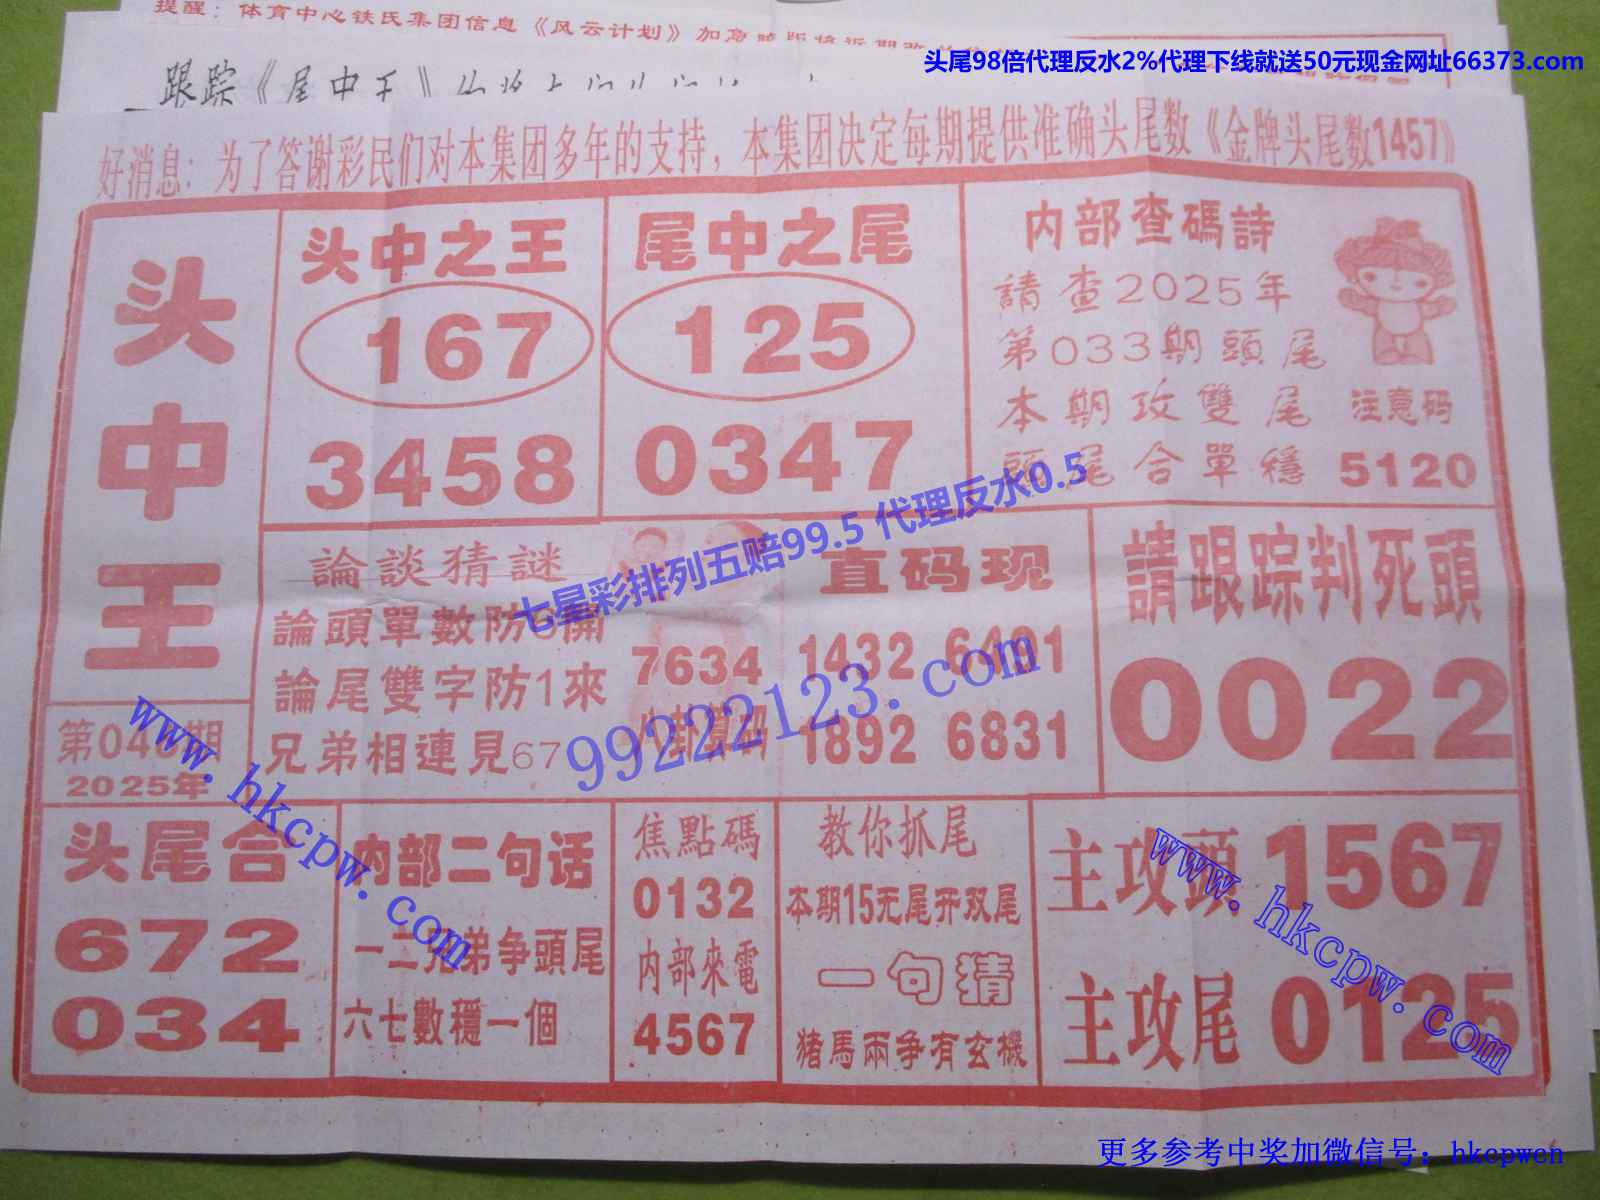 提醒：体育中心铁氏集团信息《风云计划》加急
头尾98倍代理反水2%代理下线就送50元现金网址66373.com
跟踪《尾中王》
好消息：为了答谢彩民们对本集团多年的支持，本集团决定每期提供准确头尾数《金牌头尾数1457》
头中王
第04期
2025年
头中之王
167
3458
尾中之尾
125
0347
内部查碼詩
請查2025年
第033期頭尾
本期攻雙尾
頭尾合單穩
注意码
5120
論談猜謎
論頭單數防6開
論尾雙字防1來
兄弟相連見67
7634
八卦算码
直码现
1432 6491
1892 6831
請跟踪判死頭
0022
七星彩排列五赔99.5 代理反水0.5
99222123.com
www.hkcpw.com
头尾合
672
034
内部二句话
一二兄弟争頭尾
六七數穩一個
焦點碼
0132
内部來電
4567
教你抓尾
本期15无尾开双尾
一句猜
猪馬兩争有玄機
主攻頭 1567
主攻尾 0125
www.hkcpw.com
更多参考中奖加微信号：hkcpwcn